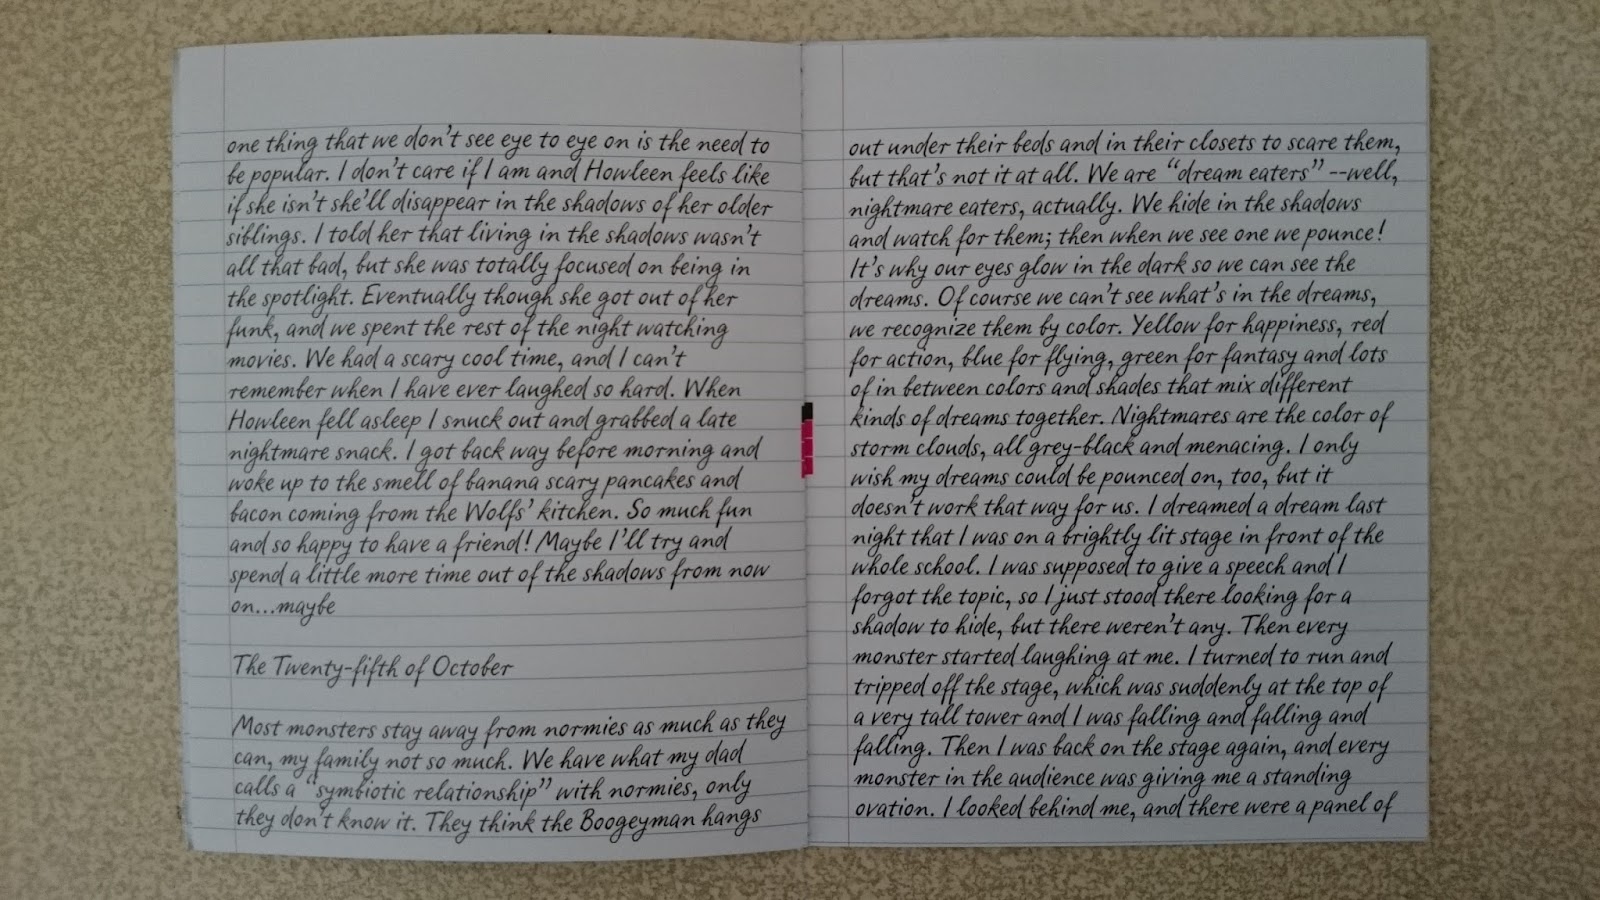 one thing that we don't see eye to eye on is the need to
be popular. I don't care if I am and Howleen feels like
if she isn't she'll disappear in the shadows of her older
siblings. I told her that living in the shadows wasn't
all that bad, but she was totally focused on being in
the spotlight. Eventually though she got out of her
funk, and we spent the rest of the night watching
movies. We had a scary cool time, and I can't
remember when I have ever laughed so hard. When
Howleen fell asleep I snuck out and grabbed a late
nightmare snack. I got back way before morning and
woke up to the smell of banana scary pancakes and
bacon coming from the Wolfs' kitchen. So much fun
and so happy to have a friend! Maybe I'll try and
spend a little more time out of the shadows from now
on...maybe
The Twenty-fifth of October
Most monsters stay away from normies as much as they
can, my family not so much. We have what my dad
calls a "symbiotic relationship" with normies, only
they don't know it. They think the Boogeyman hangs
out under their beds and in their closets to scare them,
but that's not it at all. We are "dream eaters" --well,
nightmare eaters, actually. We hide in the shadows
and watch for them; then when we see one we pounce!
It's why our eyes glow in the dark so we can see the
dreams. Of course we can't see what's in the dreams,
we recognize them by color. Yellow for happiness, red
for action, blue for flying, green for fantasy and lots
of in between colors and shades that mix different
kinds of dreams together. Nightmares are the color of
storm clouds, all grey-black and menacing. I only
wish my dreams could be pounced on, too, but it
doesn't work that way for us. I dreamed a dream last
night that I was on a brightly lit stage in front of the
whole school. I was supposed to give a speech and I
forgot the topic, so I just stood there looking for a
shadow to hide, but there weren't any. Then every
monster started laughing at me. I turned to run and
tripped off the stage, which was suddenly at the top of
a very tall tower and I was falling and falling and
falling. Then I was back on the stage again, and every
monster in the audience was giving me a standing
ovation. I looked behind me, and there were a panel of